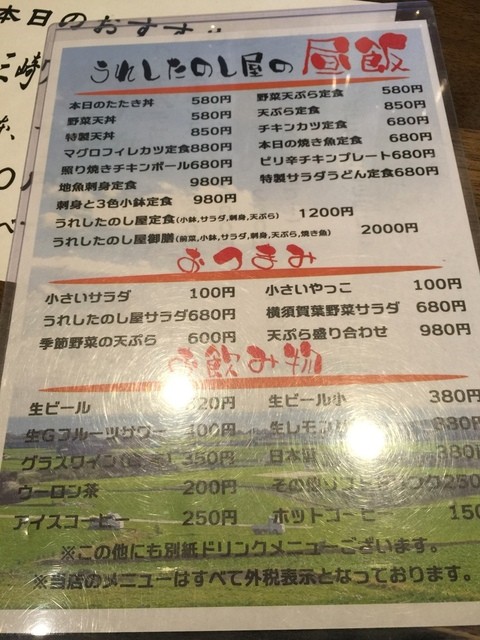 本日のおすすめ
うれしたのし屋の昼飯
本日のたたき丼 580円
野菜天丼 580円
特製天丼 850円
マグロフィレカツ定食880円
照り焼きチキンボール680円
地魚刺身定食 980円
刺身と3色小鉢定食 980円
野菜天ぷら定食 580円
天ぷら定食 850円
チキンカツ定食 680円
本日の焼き魚定食 680円
ピリ辛チキンプレート680円
特製サラダうどん定食680円
うれしたのし屋定食(小鉢,サラダ,刺身,天ぷら) 1200円
うれしたのし屋御膳(前菜,小鉢,サラダ,刺身,天ぷら,焼き魚) 2000円
おつまみ
小さいサラダ 100円
うれしたのし屋サラダ680円
季節野菜の天ぷら 600円
小さいやっこ 100円
横須賀葉野菜サラダ 680円
天ぷら盛り合わせ 980円
お飲み物
生ビール 20円
生Gフルーツサワー 400円
グラスワイン 350円
ウーロン茶 200円
アイスコーヒー 250円
生ビール小 380円
生レモン 380円
日本酒 380円
その他ソフトドリンク250
ホットコーヒー 150
※この他にも別紙ドリンクメニューございます。
※当店のメニューはすべて外税表示となっております。